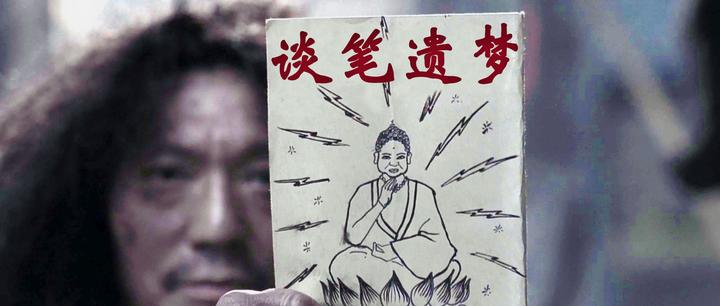 谈笔遗梦